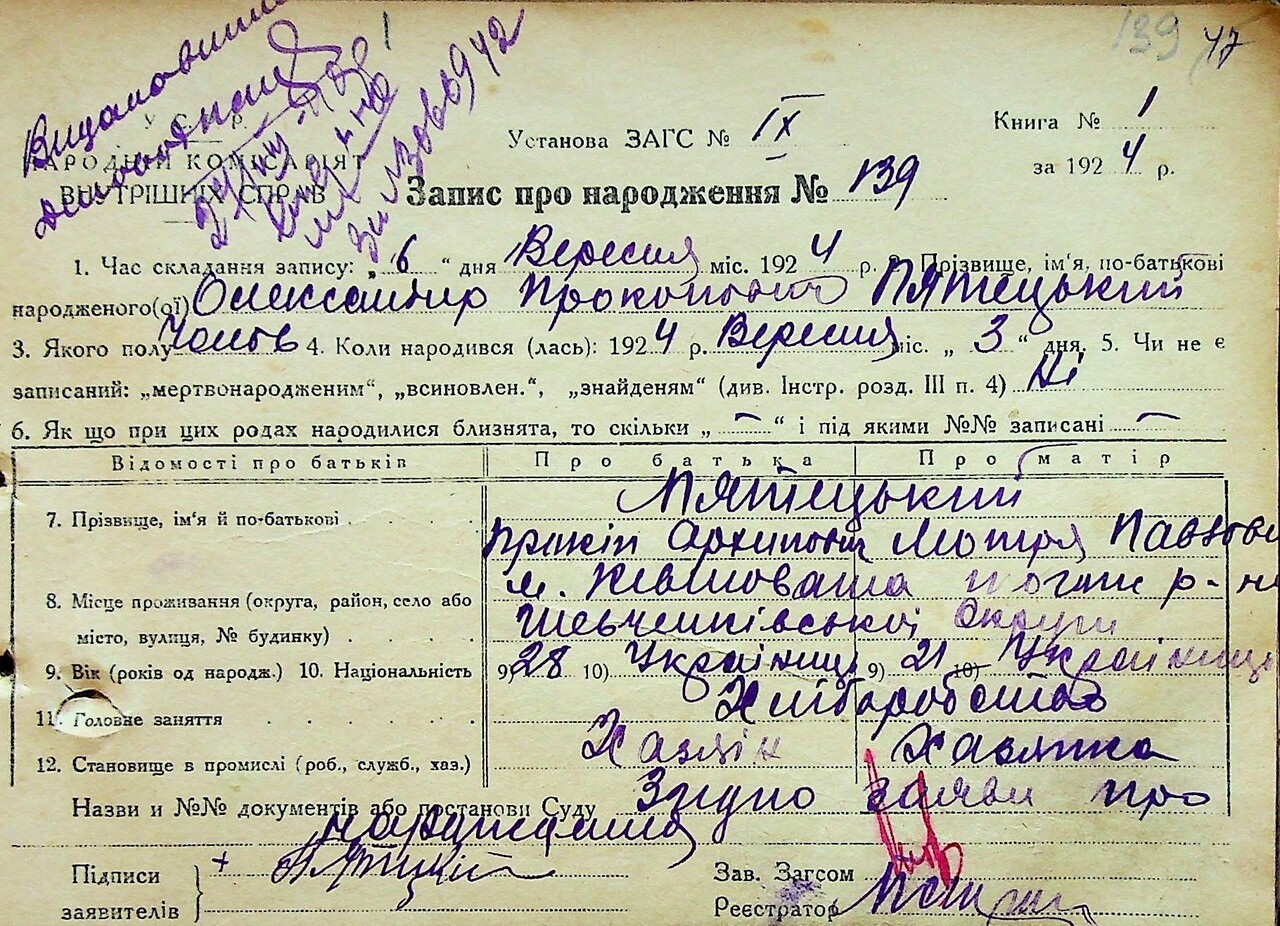 139 47
У. С. Р.
НАРОДНИЙ КОМІСАРІЯТ
ВНУТРІШНІХ СПРАВ
Установа ЗАГС № IX
Книга № 1
за 1924 р.
Запис про народження № 139
1. Час складання запису: „6“ дня Вересня міс. 1924 р. 2. Прізвище, ім'я, по-батькові
народженого(ої) Олександир Прокопович Пятецький
3. Якого полу Чолов 4. Коли народився (лась): 1924 р. Вересня міс. „3“ дня. 5. Чи не є
записаний: „мертвонародженим“, „всиновлен.“, „знайденям“ (див. Інстр. розд. III п. 4) Ні
6. Як що при цих родах народилися близнята, то скільки „–“ і під якими №№ записані –
Відомості про батьків Про батька Про матір
7. Прізвище, ім'я й по-батькові Пятецький
Прокіп Архипович Мотря Павлов
8. Місце проживання (округа, район, село або м. Ківшовата р-н
місто, вулиця, № будинку) Шевченківської Округи
9. Вік (років од народж.) 10. Національність 9) 28 10) Українці 9) 21 10) Українці
11. Головне заняття Хліборобство
12. Становище в промислі (роб., служб., хаз.) Хазяін Хазяйка
Назви и №№ документів або постанови Суду Згідно заяви про
народження
Підписи заявителів + Пятицкий
Зав. Загсом
Реєстратор